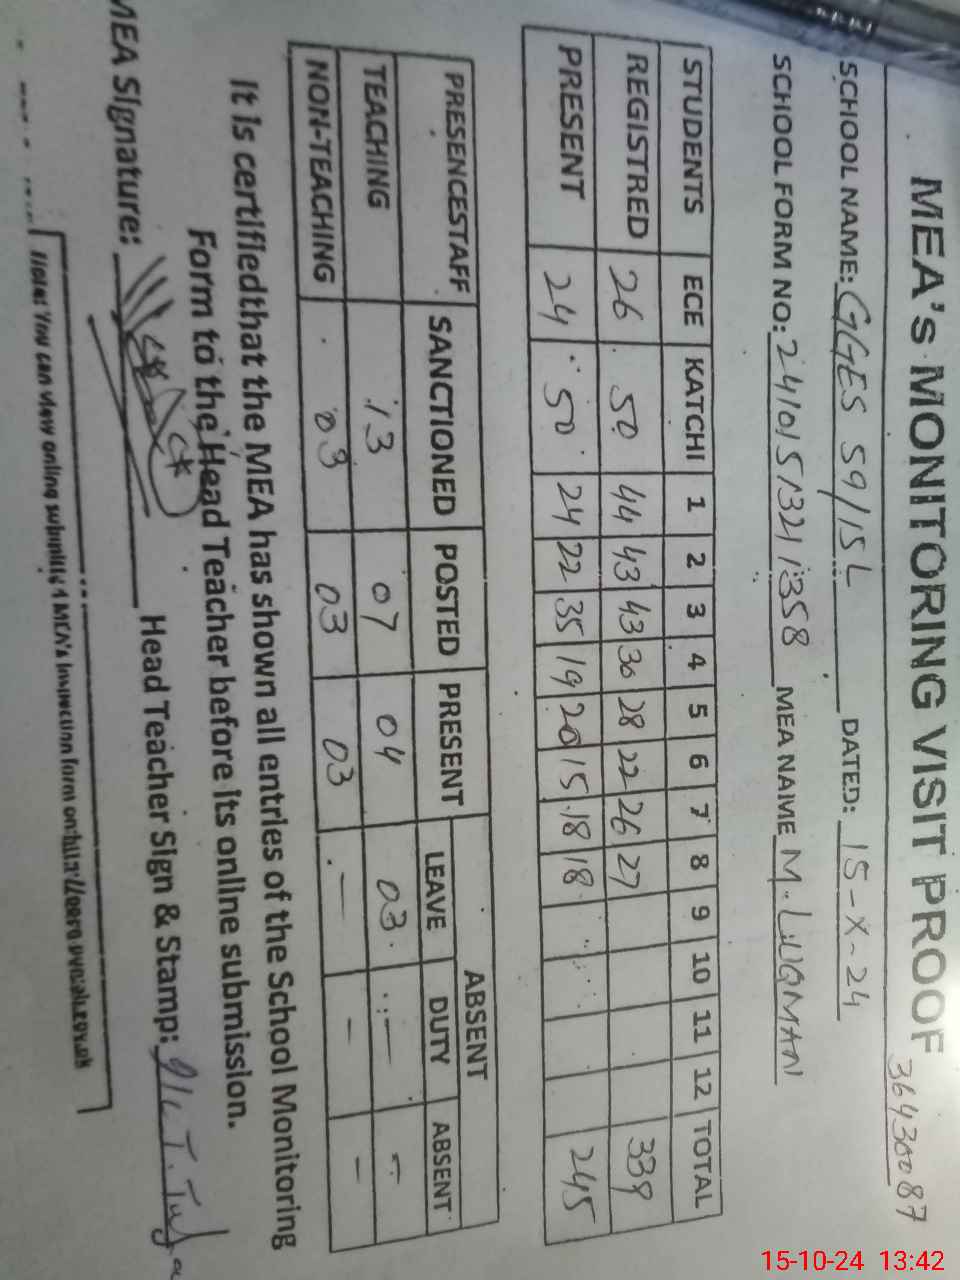 MEA's MONITORING VISIT PROOF
36430087
SCHOOL NAME: GGES 59/15L DATED: 15-X-24
SCHOOL FORM NO: 241015/321/358 MEA NAME M. LUQMAN
STUDENTS ECE KATCHI 1 2 3 4 5 6 7 8 9 10 11 12 TOTAL
REGISTRED 26 50 44 43 43 30 28 22 26 27 339
PRESENT 24 50 24 22 35 19 20 15 18 18 245
PRESENCESTAFF SANCTIONED POSTED PRESENT ABSENT
LEAVE DUTY ABSENT
TEACHING 13 07 04 03 - -
NON-TEACHING 03 03 03 - - -
It is certifiedthat the MEA has shown all entries of the School Monitoring
Form to the Head Teacher before its online submission.
MEA Signature: Head Teacher Sign & Stamp:
Note: You can view online submitted MEA's Inspection form on:
15-10-24 13:42